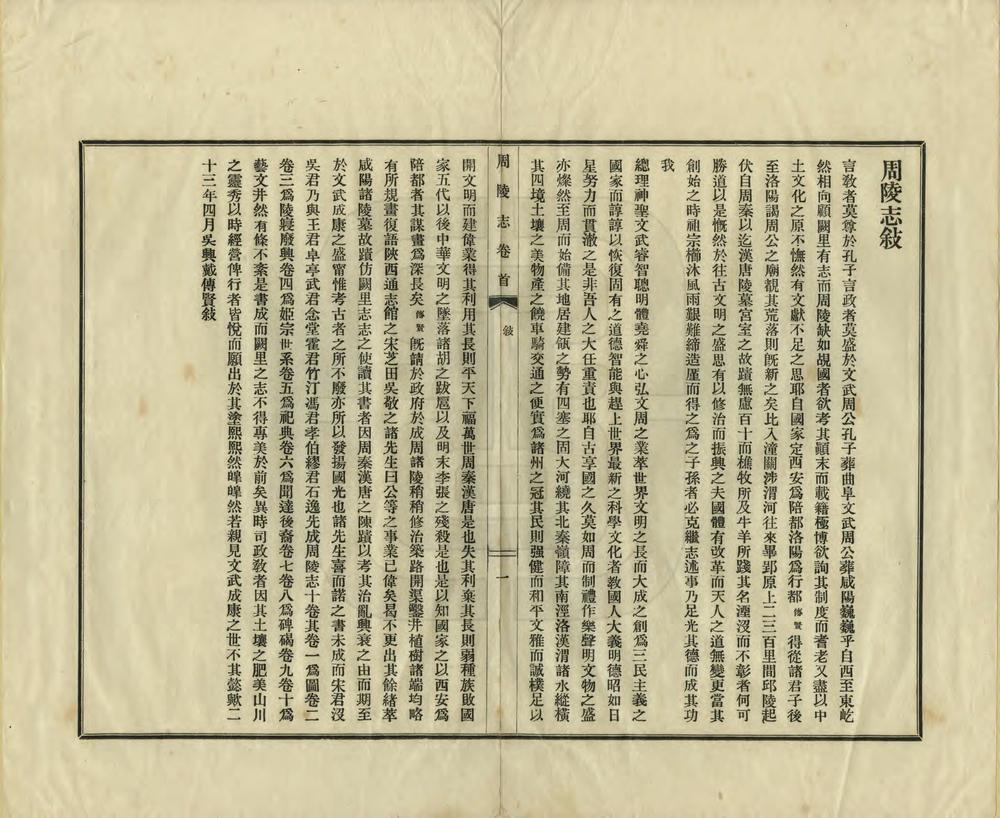 周陵志敍
言敎者莫尊於孔子言政者莫盛於文武周公孔子葬曲阜文武周公葬咸陽巍巍乎自西至東屹
然相向顧闕里有志而周陵缺如覘國者欲考其顚末而載籍極博欲詢其制度而耆老又盡以中
土文化之原不憮然有文獻不足之思耶自國家定西安爲陪都洛陽爲行都傳賢得從諸君子後
至洛陽謁周公之廟覩其荒落則旣新之矣比入潼關涉渭河往來畢郢原上二三百里間邱陵起
伏自周秦以迄漢唐陵墓宮室之故蹟無慮百十而樵牧所及牛羊所踐其名湮沒而不彰者何可
勝道以是慨然於往古文明之盛思有以修治而振興之夫國體有改革而天人之道無變更當其
創始之時祖宗櫛沐風雨艱難締造厪而得之爲之子孫者必克繼志述事乃足光其德而成其功
我
總理神聖文武睿智聰明體堯舜之心弘文周之業萃世界文明之長而大成之創爲三民主義之
國家而諄諄以恢復固有之道德智能與趕上世界最新之科學文化者教國人大義明德昭如日
星努力而貫澈之是非吾人之大任重責也耶自古享國之久莫如周而制禮作樂聲明文物之盛
亦燦然至周而始備其地居建瓴之勢有四塞之固大河繞其北秦嶺障其南涇洛漢渭諸水縱橫
其四境土壤之美物產之饒車騎交通之便實爲諸州之冠其民則强健而和平文雅而誠樸足以
周陵志卷首
敍
一
開文明而建偉業得其利用其長則平天下福萬世周秦漢唐是也失其利棄其長則弱種族敗國
家五代以後中華文明之墜落諸胡之跋扈以及明末李張之殘殺是也是以知國家之以西安爲
陪都者其謀畫爲深長矣傳賢旣請於政府於成周諸陵稍稍修治築路開渠鑿井植樹諸端均略
有所規畫復語陝西通志館之宋芝田吳敬之諸先生曰公等之事業已偉矣曷不更出其餘緒萃
咸陽諸陵墓故蹟仿闕里志志之使讀其書者因周秦漢唐之陳蹟以考其治亂興衰之由而期至
於文武成康之盛甯惟考古者之所不廢亦所以發揚國光也諸先生喜而諾之書未成而宋君沒
吳君乃與王君卓亭武君念堂霍君竹汀馮君孝伯繆君石逸先成周陵志十卷其卷一爲圖卷二
卷三爲陵寢廢興卷四爲姬宗世系卷五爲祀典卷六爲聞達後裔卷七卷八爲碑碣卷九卷十爲
藝文井然有條不紊是書成而闕里之志不得專美於前矣異時司政敎者因其土壤之肥美山川
之靈秀以時經營俾行者皆悅而願出於其塗熙熙然皞皞然若親見文武成康之世不其懿歟二
十三年四月吳興戴傳賢敍